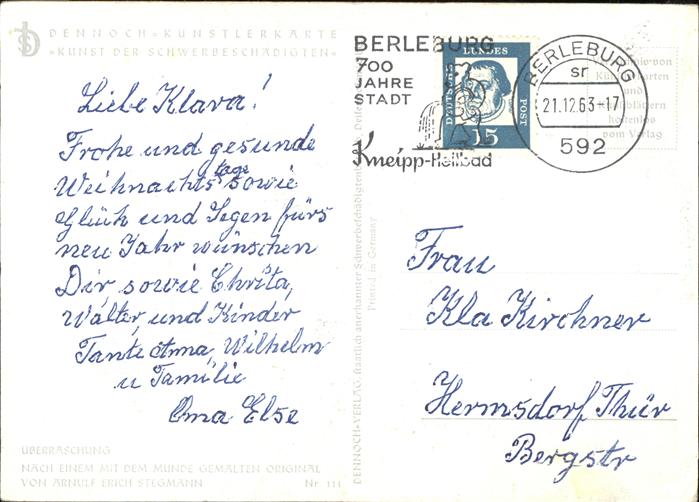 DENNOCH-KÜNSTLERKARTE
»KUNST DER SCHWERBESCHÄDIGTEN«
Liebe Klara!
Frohe und gesunde
Weihnachtstage sowie
Glück und Segen fürs
neu Jahr wünschen
Dir sowie Chrita,
Walter, und Kinder
Tante Anna, Wilhelm
u Familie
Oma Else
ÜBERRASCHUNG
NACH EINEM MIT DEM MUNDE GEMALTEN ORIGINAL
VON ARNULF ERICH STEGMANN Nr. 111
DENNOCH-VERLAG, staatlich anerkannter Schwerbeschädigtenbetrieb,
Printed in Germany
BERLEBURG
700
JAHRE
STADT
Kneipp-Heilbad
DEUTSCHE BUNDESPOST
15
BERLEBURG
sr
21.12.63-17
592
von
Künstlerkarten
und
kostenlos
vom Verlag
Frau
Kla Kirchner
Hermsdorf Thür
Bergstr